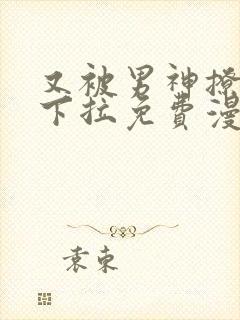 又被男神撩
下拉免费漫
袁束